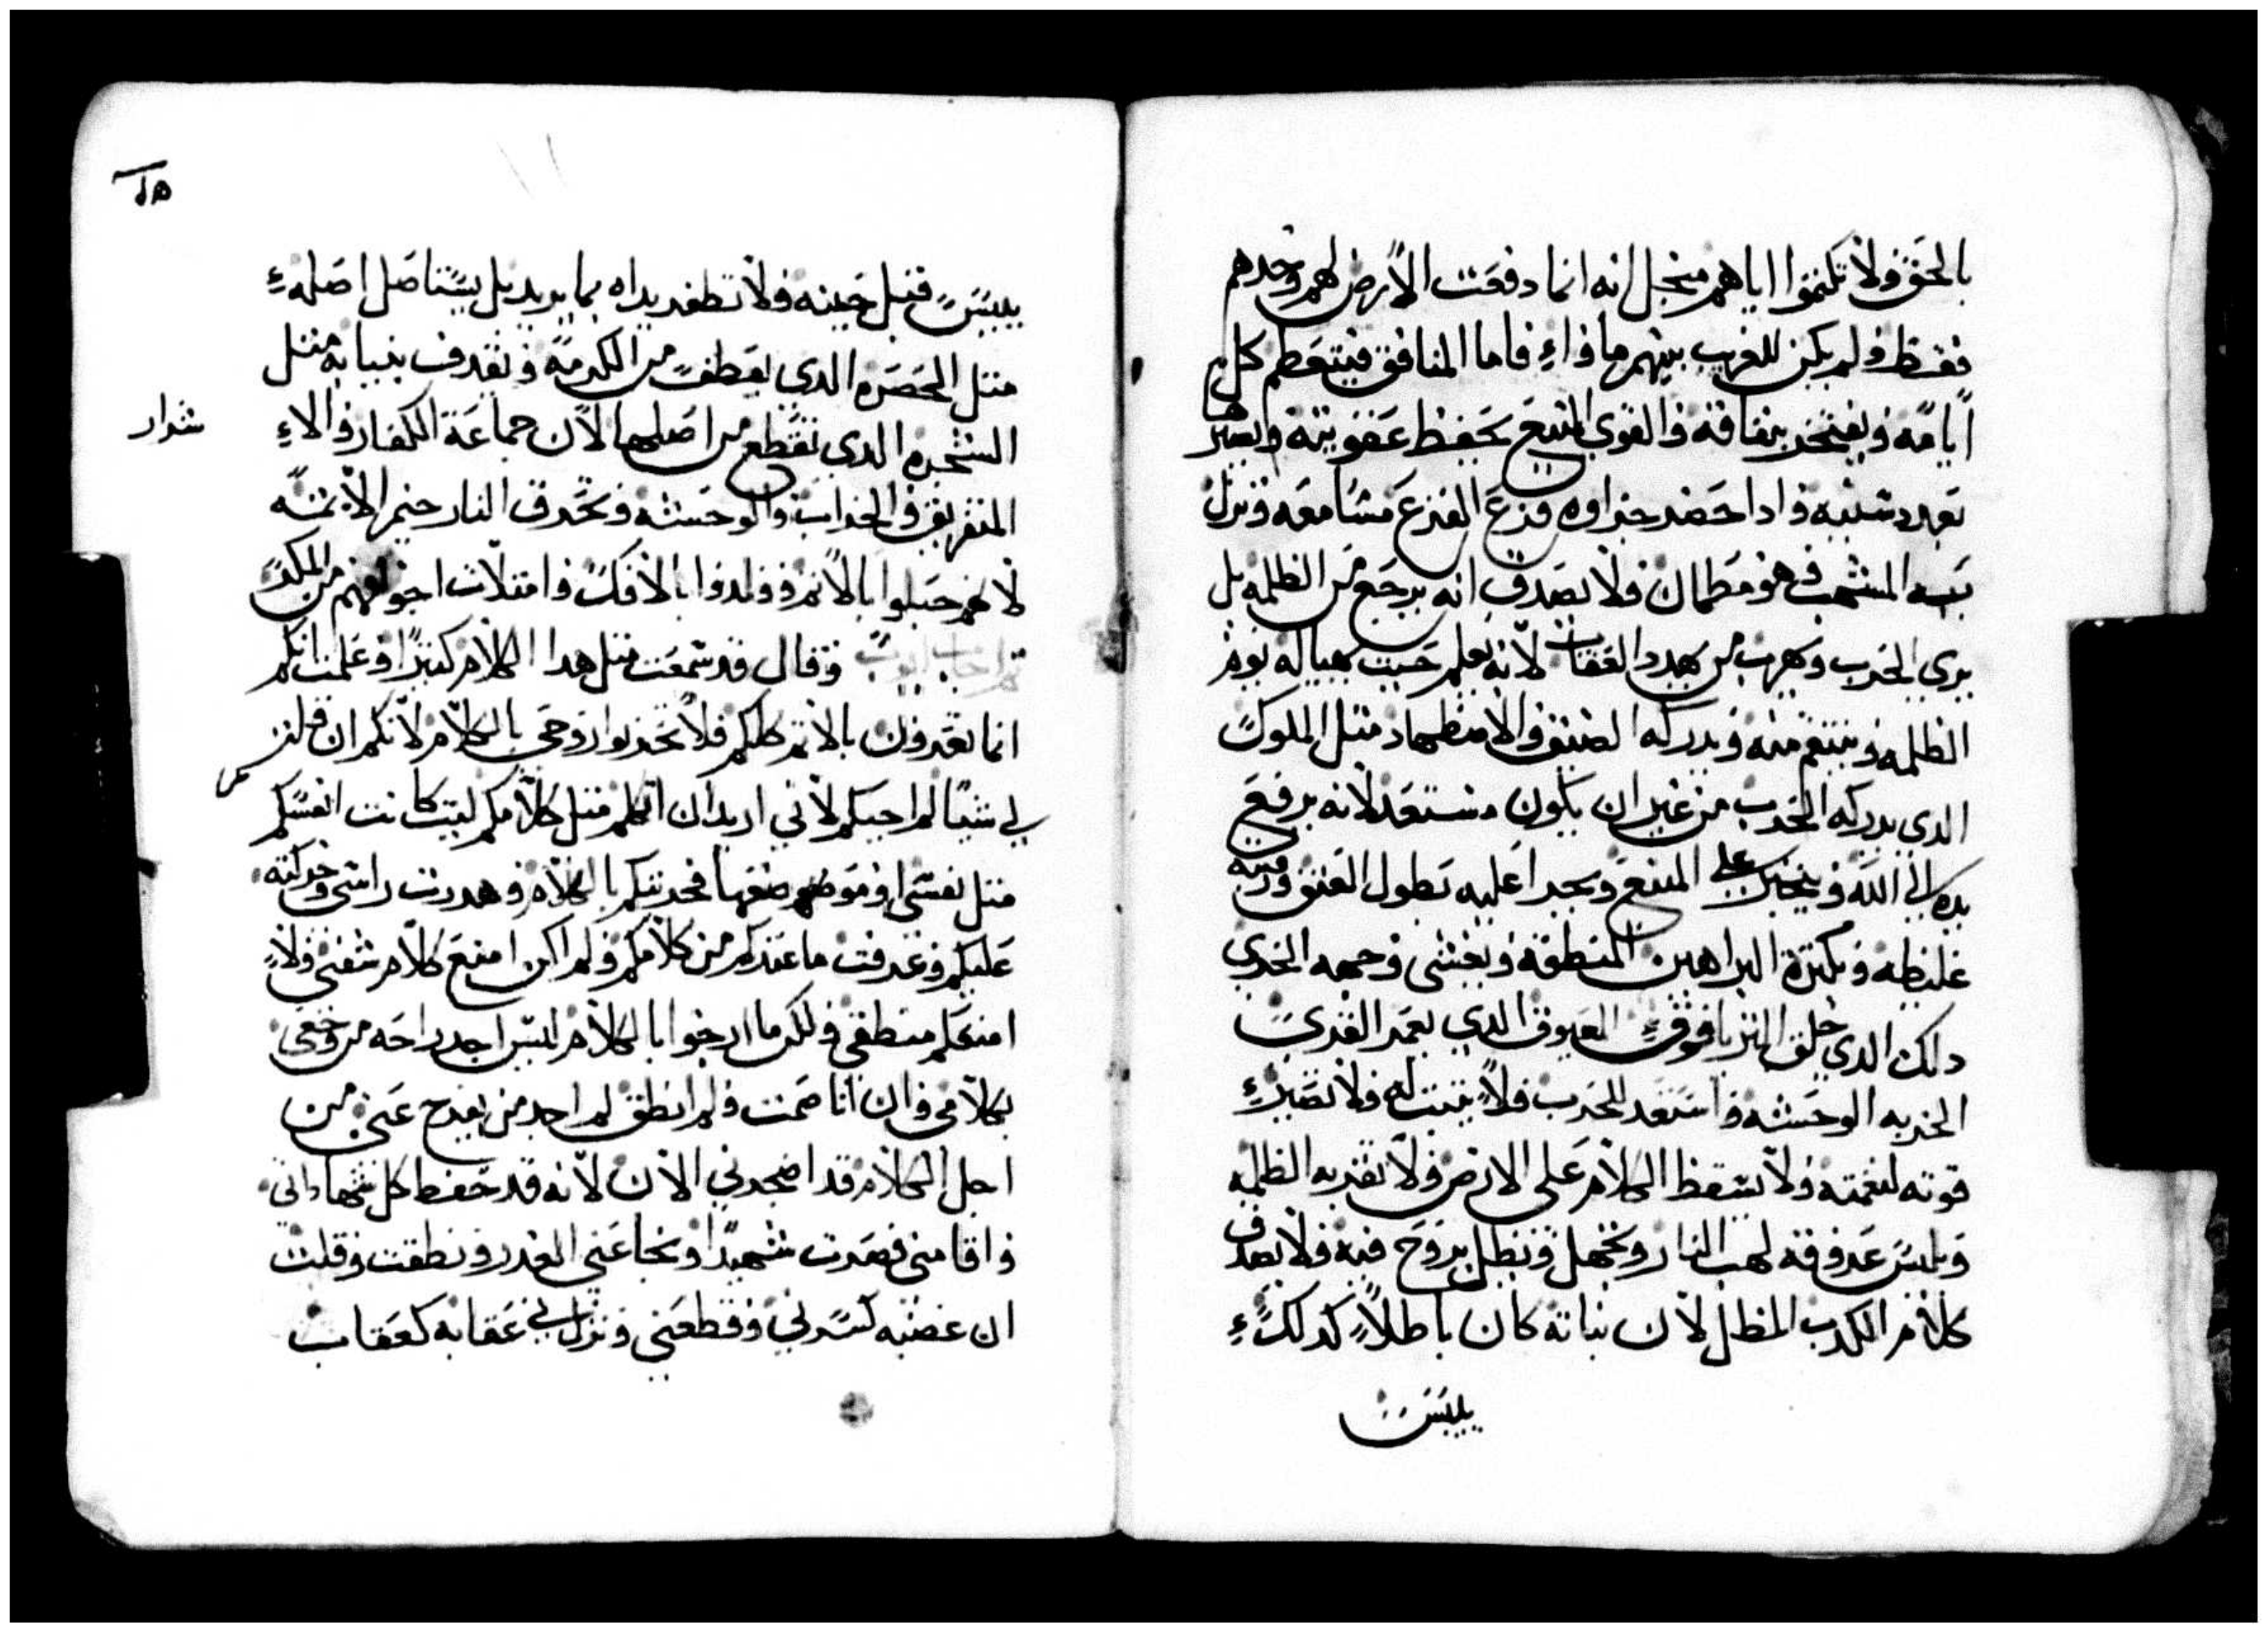 بالحق ولا تكتموا اياهم منجل انه انما دفعت الارض لهم وحدهم
فقط ولم يكن للغريب بينهم ماواء فاما المنافق فيتعظم كل
ايامه ويفتخر بنفاقه والقوي المنيع يحفظ عقوبته
تهدد سنيه واذا حضر جزاوه فزع الفزع مسامعه ونزل
به المنتهب وهو مطمان ولا يصدق انه يرجع من الظلمه بل
يري الحرب ويهرب من يهدد العقاب لانه يعلم حيث يهيا له يوم
الظلمه وينتقم منه ويدركه الضيق والاضطهاد مثل الملوك
الدي يدركه الحرب من غير ان يكون مستعد لانه يرفع
يده الي الله ويتجبر علي المنيع ويجرا عليه بطول العنق ورقبه
غليظه وبكثرة البراهين المنطقه ويغشي وجهه الخزي
دلك الدي خلق الثريا فوق العيوق الدي يعمر القري
الخربه الوحشه واستعد للحرب فلا يثبت له ولا تصير
قوته لنعمته ولا يسقط الكلام علي الارض ولا تقر به الظلمه
ويلبس عروقه لهب النار ويجهل ويظل بروح فيه ولا يصدق
كلام الكدب المظل لان نباته كان باطلا كدلك
ييبس
ييبس قبل حينه ولا تظفر يداه بما يريد بل يستاصل اصله
مثل الحصره الدي يقطف من الكرمه ويقدف بنباته مثل
الشجره الدي تقطع من اصلها لان جماعة الكفار والاء
شرار
المتفريق والخراب والوحشه وتحرق النار خيم الاثمه
لانهم حبلوا بالاثم وولدوا بالافك وامتلات اجوافهم من المكر
ثم اجاب ايوب وقال قد سمعت مثل هدا الكلام كثيرا وعلمت انكم
انما تعرفون بالاثم كلكم فلا تحزنوا روحي بالكلام لانكم ان قلتم
لي شيا لم اجبكم لاني اريد ان اتكلم مثل كلامكم ليت كانت انفسكم
مثل نفسي وموضعهم موضعها فحدثتكم بالكلام وهدرت راسي وحركته
عليكم وعرفت ما عندكم من كلامكم ولم اكن امنع كلام شفتي ولا
امنعكم منطقي ولكن ما ارجوا بالكلام ليس اجد راحه من وجعي
بكلامي وان انا صمت ولم انطق لم اجد من يفرح عني من
اجل الكلام قد اضجرني الان لانه قد حفظ كل شهاداتي
واقامني فصرت شهيدا ونجا عني الغدر ونطقت وقلت
ان غضبه كسرني وقطعني ونزل بي عقابه كعقاب